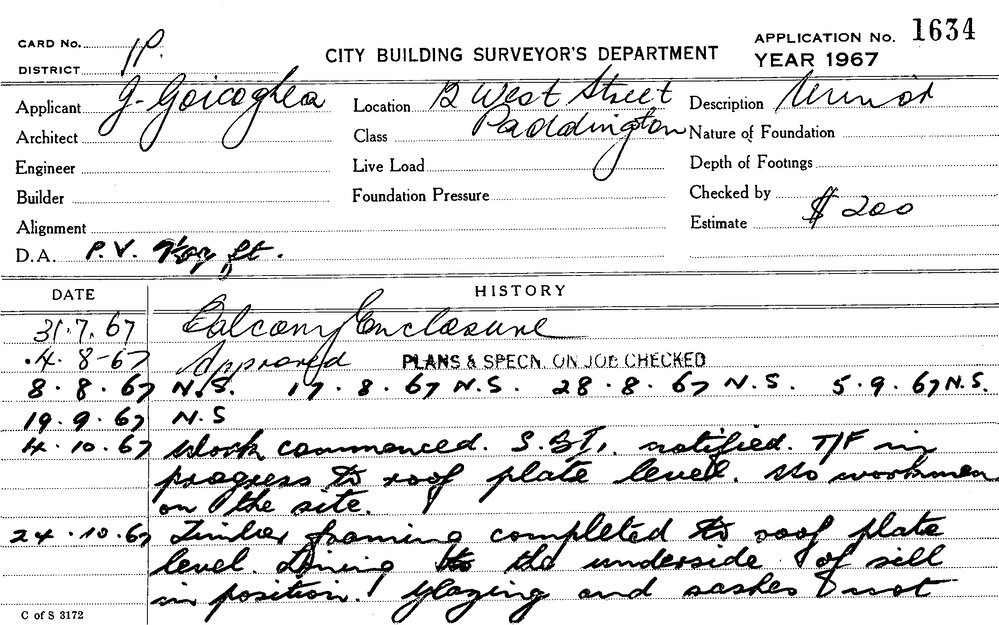 CARD No. 11P.
CITY BUILDING SURVEYOR'S DEPARTMENT
APPLICATION No. 1634
DISTRICT
YEAR 1967
Applicant J. Goicoghea
Location 12 West Street
Description Minor
Architect
Class Paddington
Nature of Foundation
Engineer
Live Load
Depth of Footings
Builder
Foundation Pressure
Checked by
Alignment
Estimate $ 200
D.A. P.V. ft.
DATE HISTORY
31.7.67 Balcony Enclosure
.4.8-67 Approved PLANS & SPECN. ON JOB CHECKED
8.8.67 N.S. 17.8.67 N.S. 28.8.67 N.S. 5.9.67 N.S.
19.9.67 N.S
4.10.67 Work commenced. S.B.I. notified. T/F in
progress to roof plate level. No workmen
on the site.
24.10.67 Timber framing completed to roof plate
level. Lining to the underside of sill
in position. Glazing and sashes not
C of S 3172